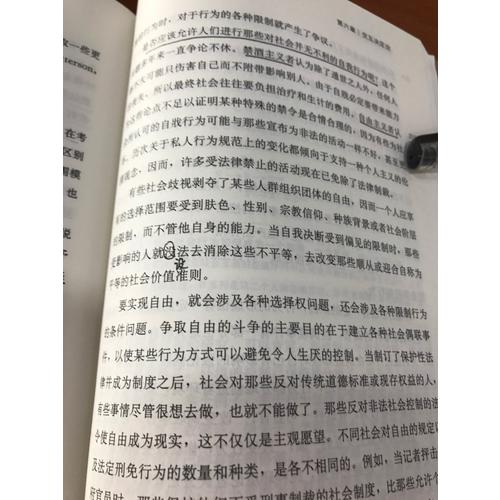 第六章：交互决定论
行为时，对于行为的各种限制就产生了争议。
是否应该允许人们进行那些对社会并无不利的自我行为呢？这
年来一直争论不休。禁酒主义者认为除了遁世之人外，任何人
不大可能只伤害自己而不附带影响别人。由于自残必丧带来能力
丧失、所以最终社会往往要负担治疗和生计的费用，自由主义者认
这些论点不足以证明某种特殊的禁令是合情合理的，因为有些为社
所认可的自戕行为可能与那些宣布为非法的活动一样不好，甚至
历次关于私人行为规范上的变化都倾向于支持一种个人主义的伦
观念，因而，许多受法律禁止的活动现在已免除了法律制裁。
有些社会歧视剥夺了某些人群组织团体的自由，因而一个人应享
有的选择范围要受到肤色、性别、宗教信仰、种族背景或者社会阶层
的限制，而不管他自身的能力。当自我决断受到偏见的限制时，那些
受影响的人就没法去消除这些不平等，去改变那些顺从或迎合自称为
设
平等的社会价值准则。
要实现自由，就会涉及各种选择权问题，还会涉及各种限制行为
的条件问题。争取自由的斗争的主要目的在于建立各种社会偶联事
件，以使某些行为方式可以避免令人生厌的控制。当制订了保护性法
律并成为制度之后，社会对那些反对传统道德标准或现存权益的人，
有些事情尽管很想去做，也就不能做了。那些反对非法社会控制的法
令使自由成为现实，这不仅仅是主观愿望。不同社会对自由的规定以
及法定刑免行为的数量和种类，是各不相同的。例如，当记者抨击
政一些更
terson,
在考
区别
围模
也
说
于